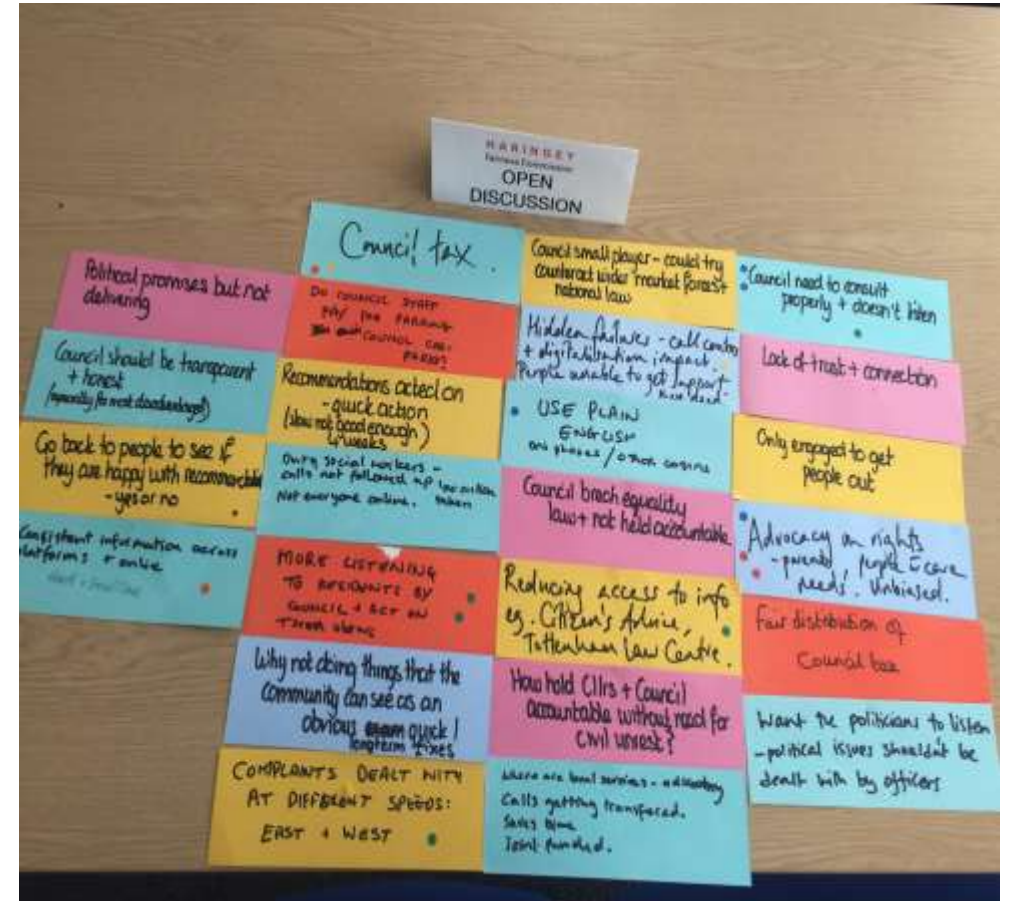 HARINGEY
Fairness Commission
OPEN
DISCUSSION
Political promises but not
delivering
Council should be transparent
+ honest
(especially for most disadvantaged)
Go back to people to see if
they are happy with
- yes or no
Consistent information across
platforms + online
Council tax.
DO COUNCIL STAFF
PAY FOR PARKING
COUNCIL CAR
PARKS?
Recommendations acted on
- quick action
(slow not good enough)
4 weeks
Duty social workers -
calls not followed up
taken
Not everyone online.
MORE LISTENING
TO RESIDENTS BY
COUNCIL + ACT ON
Why not doing things that the
community can see as an
obvious quick /
longterm fixes
COMPLANTS DEALT WITH
AT DIFFERENT SPEEDS:
EAST + WEST
Council small player - could try
counteract wider market forces +
national law
Hidden failures - call centre
+ digitalisation impact.
People unable to get support
USE PLAIN
ENGLISH
on phones / other comms
Council breach equality
law + not held accountable
Reducing access to info
eg. Citizen's Advice,
Tottenham Law Centre.
How hold Cllrs + Council
accountable without need for
civil unrest?
Where are local services -
Calls getting transfered.
Joint funded.
Council need to consult
properly + doesn't listen
Lack of trust + connection
Only engaged to get
people out
Advocacy on rights
- parents, people care
needs. Unbiased.
Fair distribution of
Council
Want the politicians to listen
- political issues shouldn't be
dealt with by officers